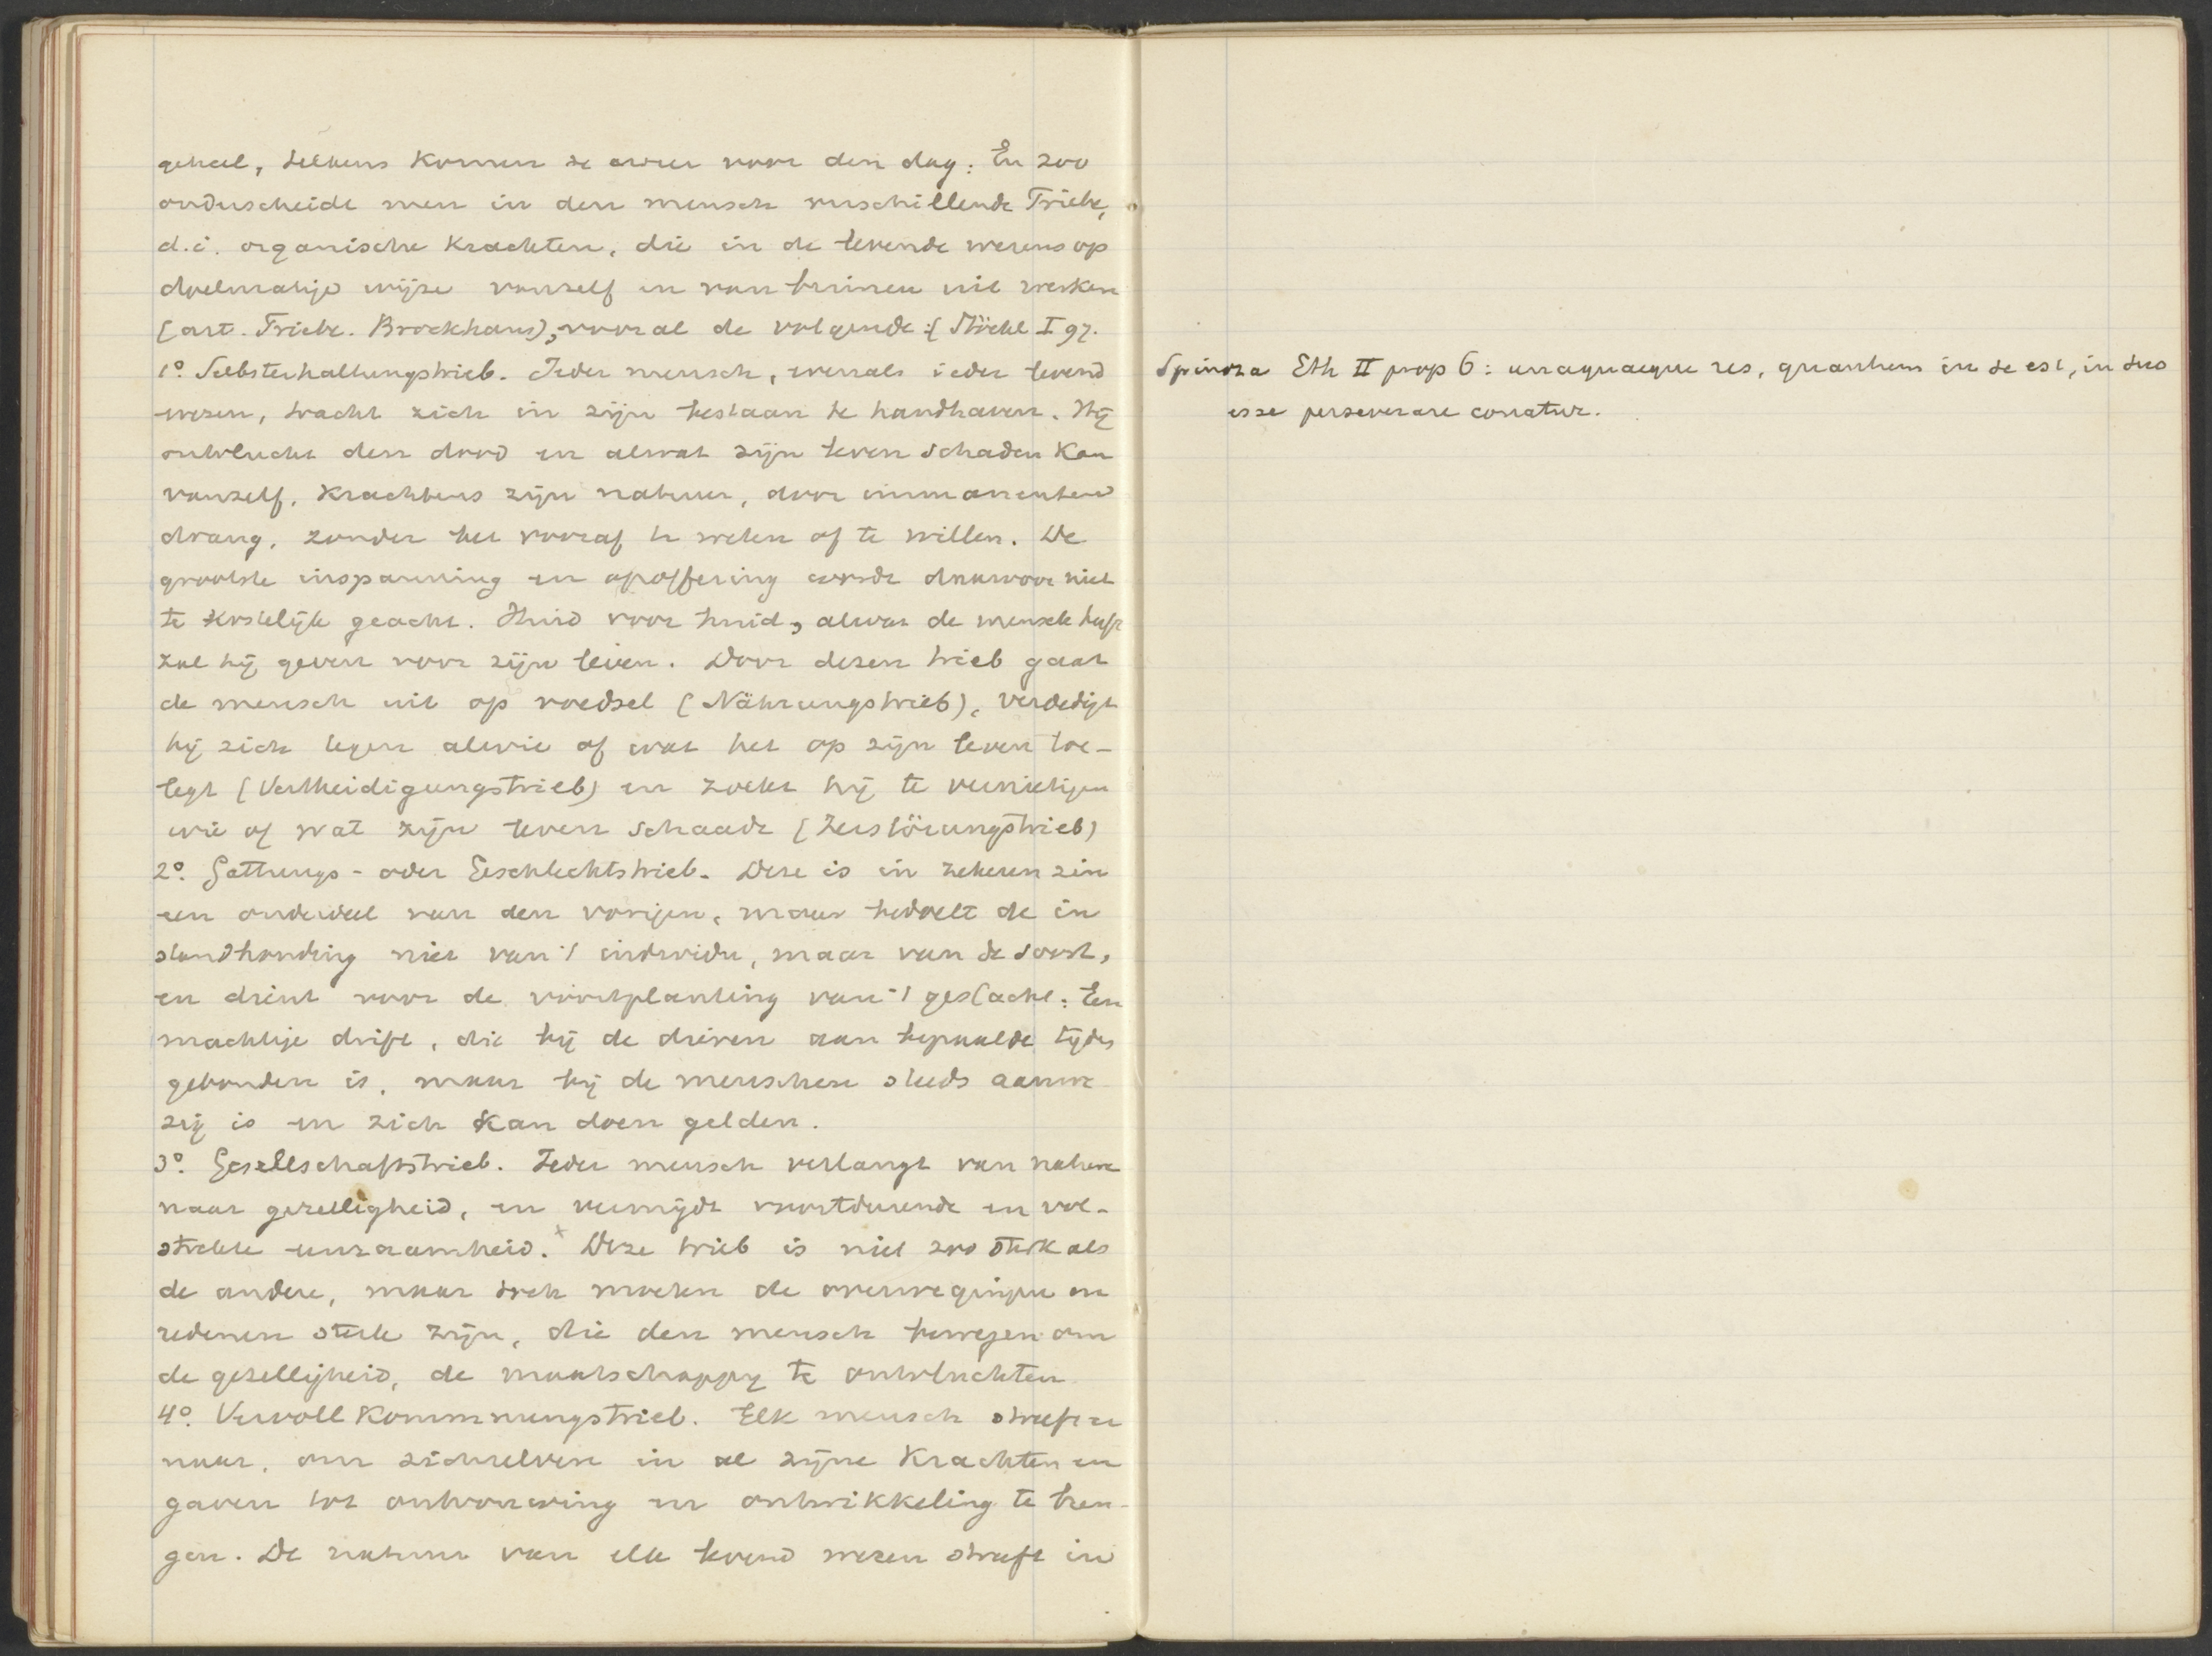 geheel, telkens komen ze weer voor den dag. En zoo
onderscheidt men in den mensch verschillende Triebe,
d.i. organische krachten, die in de levende wezens op
doelmatige wijze vanzelf en van binnen uit werken
(art. Triebe. Brockhaus), vooral de volgende: (Stöckl I 97.
1º. Selbsterhaltungstrieb. Ieder mensch, evenals ieder levend
wezen, tracht zich in zijn bestaan te handhaven. Hij
ontvlucht den dood en alwat zijn leven schaden kan
vanzelf, krachtens zijn natuur, door immanenten
drang, zonder het vooraf te weten of te willen. De
grootste inspanning en opoffering wordt daarvoor niet
te kostelijk geacht. Huid voor huid, alwat de mensch heeft
zal hij geven voor zijn leven. Door dezen trieb gaat
de mensch uit op voedsel (Nährungstrieb), verdedigt
hij zich tegen alwie of wat het op zijn leven toe-
legt (Vertheidigungstrieb) en zoekt hij te vernietigen
wie of wat zijn leven schaadt (Zerstörungstrieb)
2º. Gattungs- oder Geschlechtstrieb. Deze is in zekeren zin
een onderdeel van den vorigen, maar bedoelt de in
standhouding niet van 't individu, maar van de soort,
en dient voor de voortplanting van 't geslacht. Een
machtige drift, die bij de dieren aan bepaalde tijden
gebonden is, maar bij de menschen steeds aanwe
zig is en zich kan doen gelden.
3º. Gesellschaftstrieb. Ieder mensch verlangt van nature
naar gezelligheid, en vermijdt voortdurende en vol-
strekte eenzaamheid. x Deze trieb is niet zoo sterk als
de andere, maar toch moeten de overwegingen en
redenen sterk zijn, die den mensch bewegen om
de gezelligheid, de maatschappij te ontvluchten
4º. Vervollkommnungstrieb. Elk mensch streeft er
naar, om zichzelven in al zijne krachten en
gaven tot ontvouwing en ontwikkeling te bren-
gen. De natuur van elk levend wezen streeft in
Spinoza Eth II prop 6: unaquaeque res, quantum in se est, in suo
esse perseverare conatur.